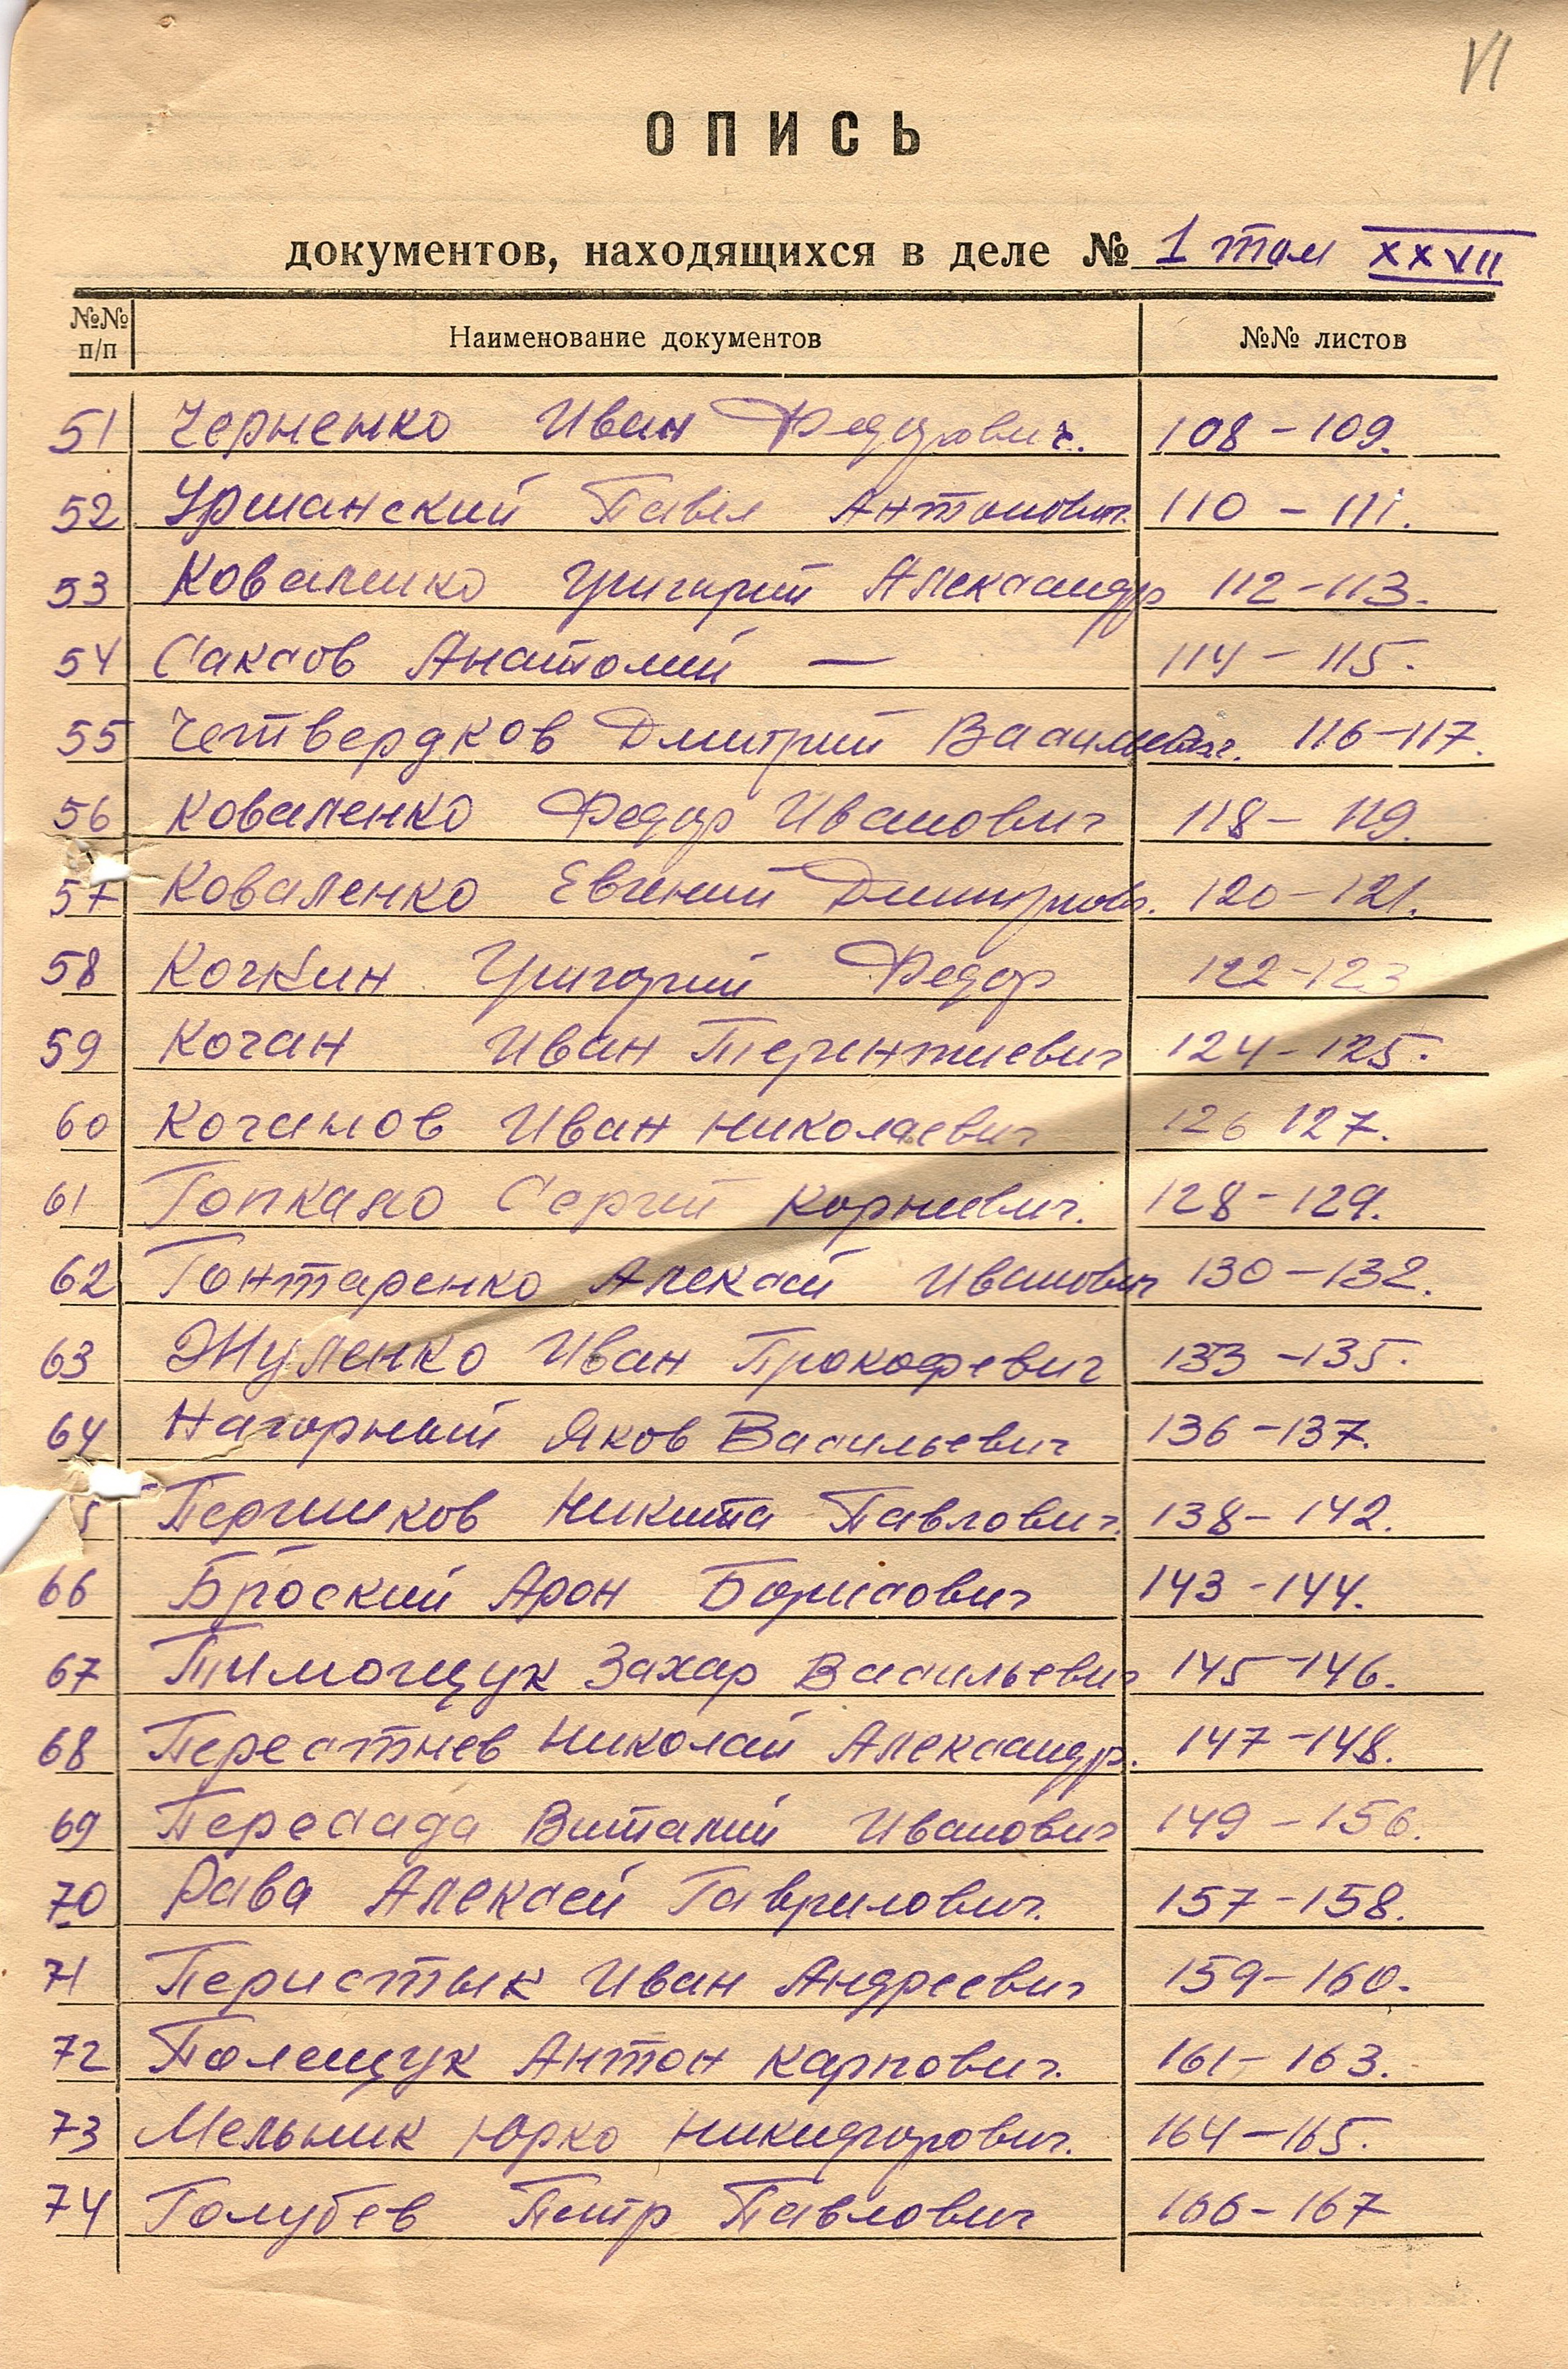 VI
ОПИСЬ
документов, находящихся в деле № 1 том XXVII
№№ п/п Наименование документов №№ листов
51 Черненко Иван Федорович. 108-109.
52 Уршанский Павел Антонович. 110-111.
53 Коваленко Григорий Александр 112-113.
54 Саксов Анатолий — 114-115.
55 Четвердков Дмитрий Васильевич. 116-117.
56 Коваленко Федор Иванович 118-119.
57 Коваленко Евгений Дмитриев. 120-121.
58 Кочкин Григорий Федор 122-123
59 Кочан Иван Терентиевич 124-125.
60 Кочанов Иван Николаевич 126 127.
61 Топкало Сергей Корниевич. 128-129.
62 Гонтаренко Алексей Иванович 130-132.
63 Жуленко Иван Прокофевич 133-135.
64 Нагорный Яков Васильевич 136-137.
5 Першиков Никита Павлович. 138-142.
66 Броский Арон Борисович 143-144.
67 Тимощук Захар Васильевич 145-146.
68 Перестнев Николай Александр. 147-148.
69 Пересада Виталий Иванович 149-156.
70 Рава Алексей Гаврилович. 157-158.
71 Перистык Иван Андреевич 159-160.
72 Полещук Антон Карпович. 161-163.
73 Мельник Юрко Никифорович. 164-165.
74 Голубев Петр Павлович 166-167